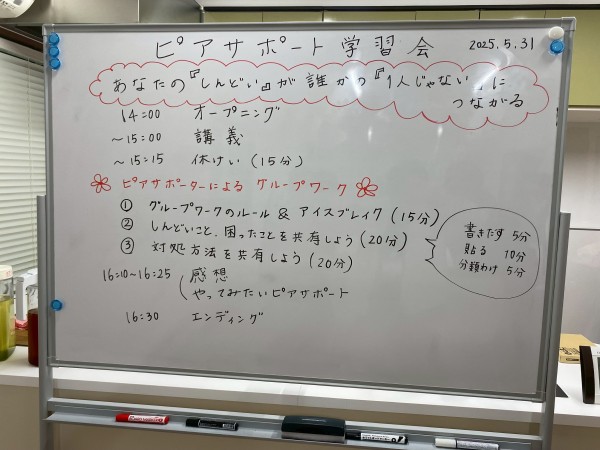 ピアサポート学習会 2025.5.31
あなたの『しんどい』が誰かの『1人じゃない』に
つながる
14:00 オープニング
~15:00 講義
~15:15 休けい(15分)
ピアサポーターによる グループワーク
① グループワークのルール & アイスブレイク(15分)
② しんどいこと、困ったことを共有しよう(20分)
③ 対処方法を共有しよう(20分)
書きだす 5分
貼る 10分
分類わけ 5分
16:10~16:25 感想
やってみたいピアサポート
16:30 エンディング